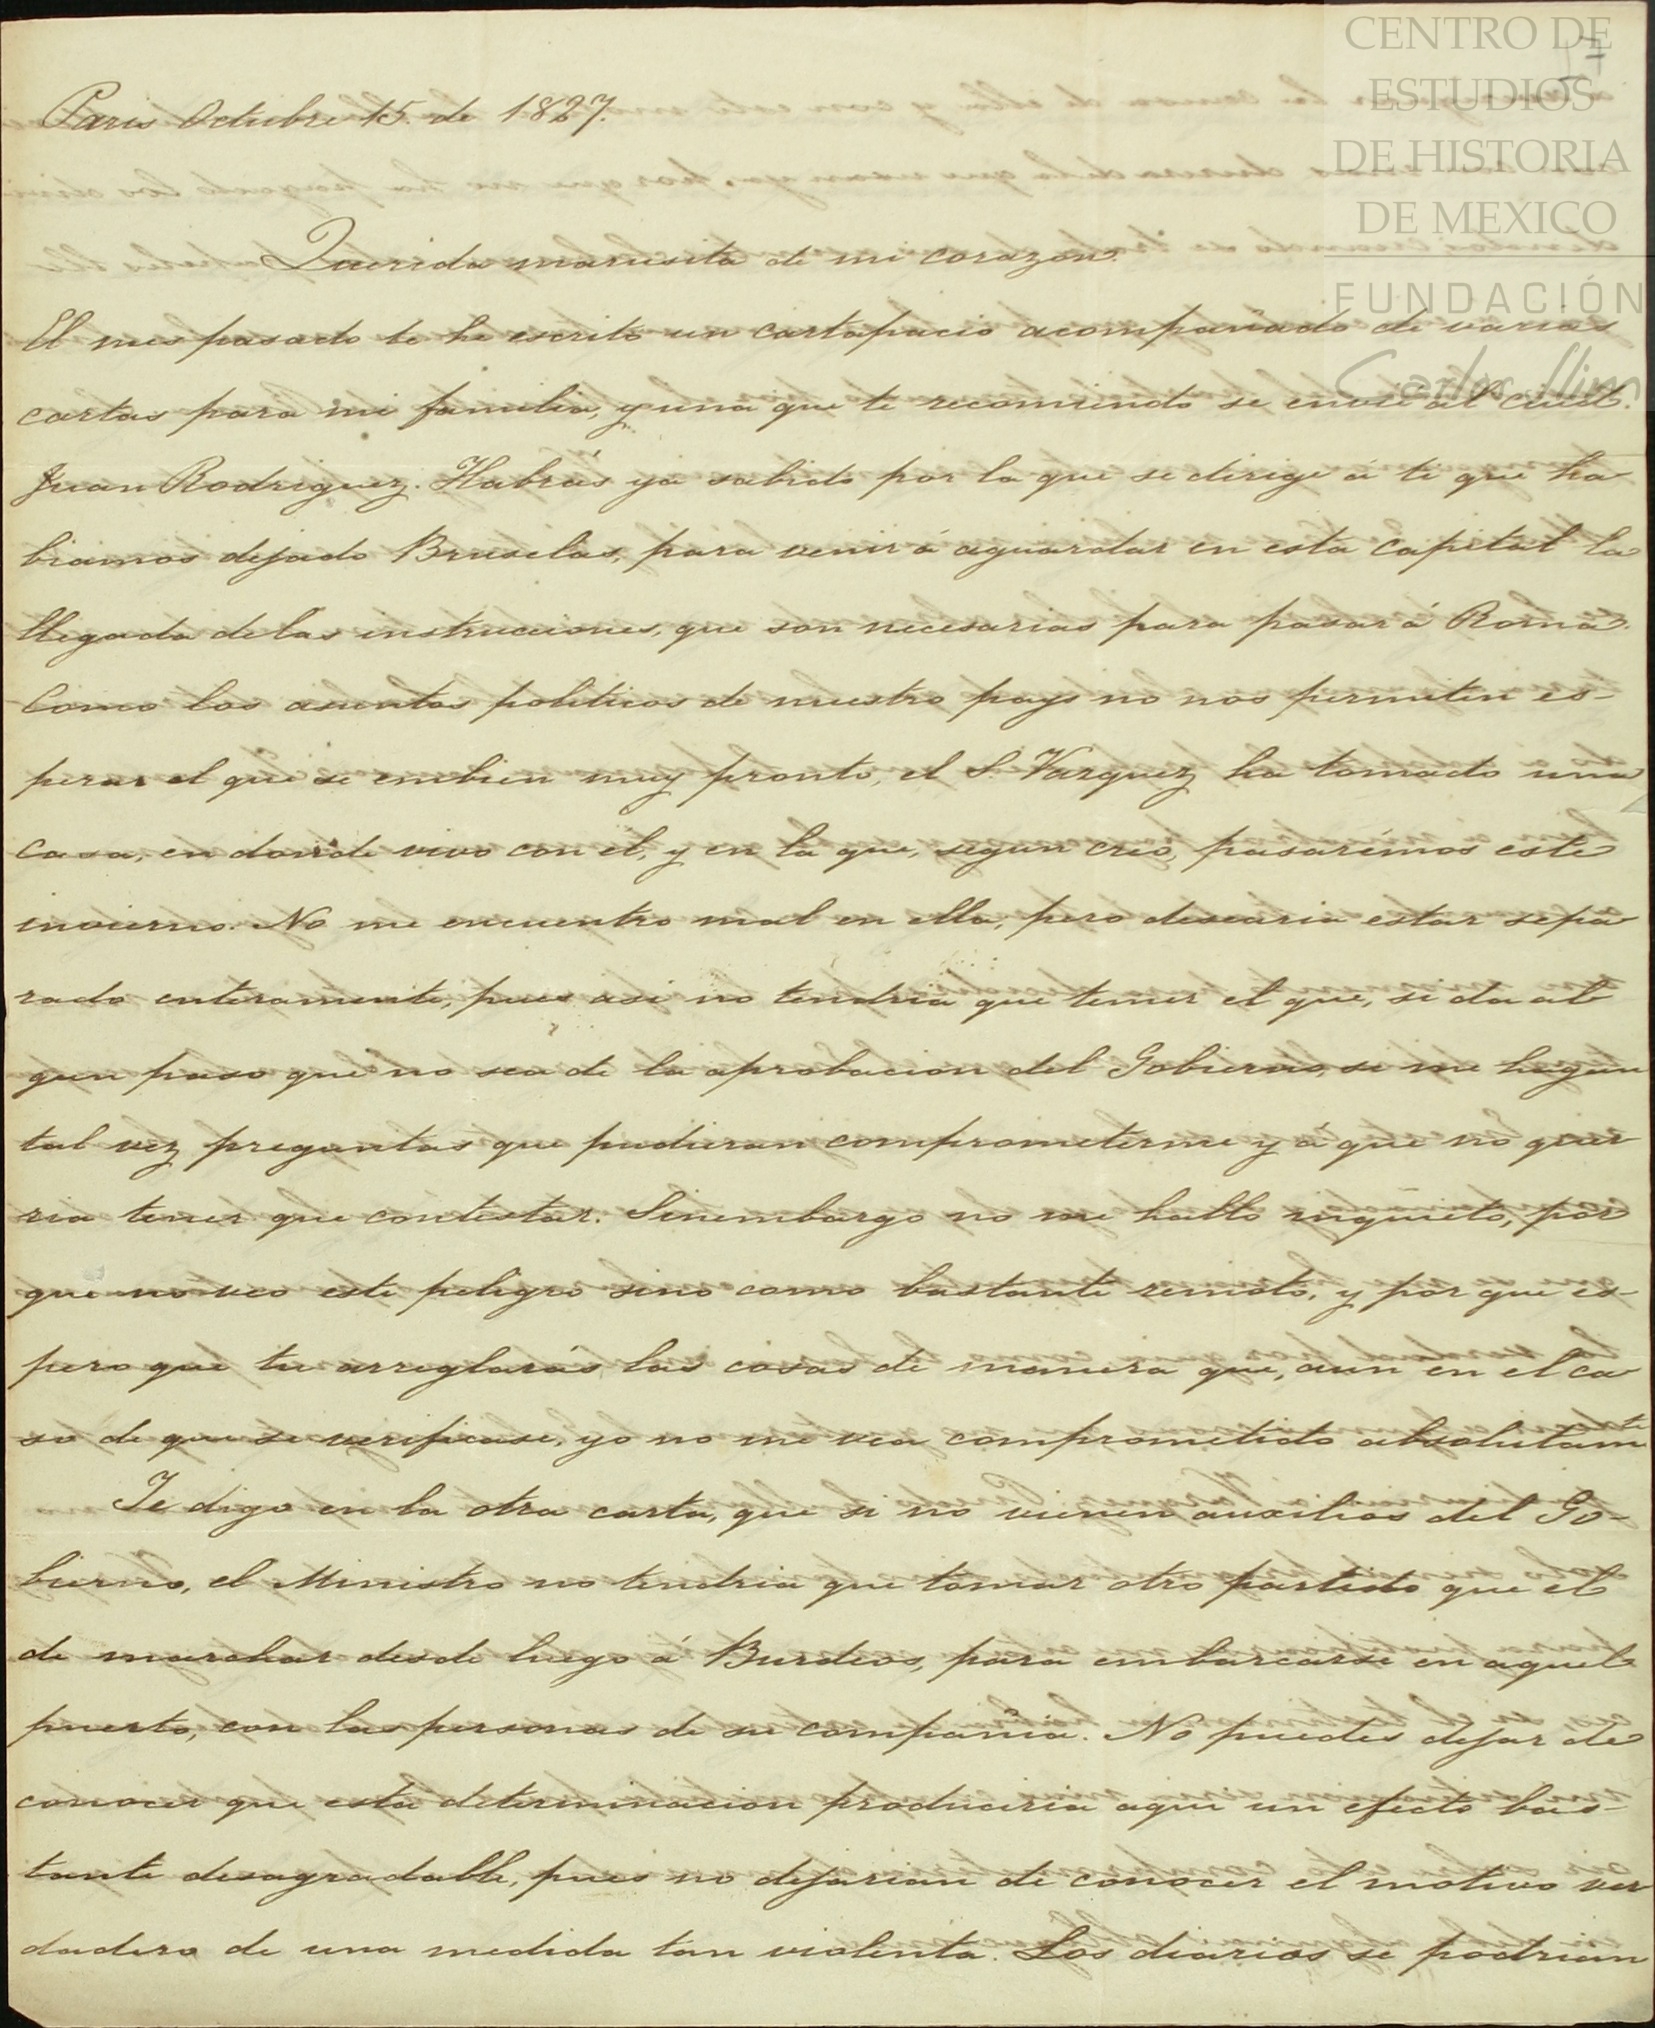 CENTRO DE
ESTUDIOS
DE HISTORIA
DE MEXICO
FUNDACIÓN
Carlos Slim
Paris Octubre 15. de 1827.
Querida mamasita de mi corazon.
El mes pasado te he escrito un cartapacio acompañado de varias
cartas para mi familia, y una que te recomiendo se envie al
Juan Rodriguez. Habrás ya sabido por la que se dirige á ti que ha
biamos dejado Bruselas, para venir á aguardar en esta capital la
llegada de las instrucciones, que son necesarias para pasar á Roma.
Como los asuntos politicos de nuestro pays no nos permiten es-
perar el que se embien muy pronto, el S. Vazquez ha tomado una
casa, en donde vivo con el, y en la que, segun creo, pasarémos este
invierno. No me encuentro mal en ella, pero desearia estar sepa
rado enteramente, pues asi no tendria que temer el que, si da al
gun paso que no sea de la aprobacion del Gobierno, se me hagan
tal vez preguntas que pudieran comprometerme y á que no quer
ria tener que contestar. Sinembargo no me hallo inquieto, por
que no veo este peligro sino como bastante remoto, y porque es-
pero que tu arreglarás las cosas de manera que, aun en el ca
so de que se verificase, yo no me vea comprometido absolutamte
Te digo en la otra carta, que si no vienen auxilios del Go-
bierno, el Ministro no tendria que tomar otro partido que el
de marchar desde luego á Burdeos, para embarcarse en aquel
puerto, con las personas de su compañia. No puedes dejar de
conocer que esta determinacion produciria aqui un efecto bas-
tante desagradable, pues no dejarian de conocer el motivo ver
dadero de una medida tan violenta. Los diarios se podrian